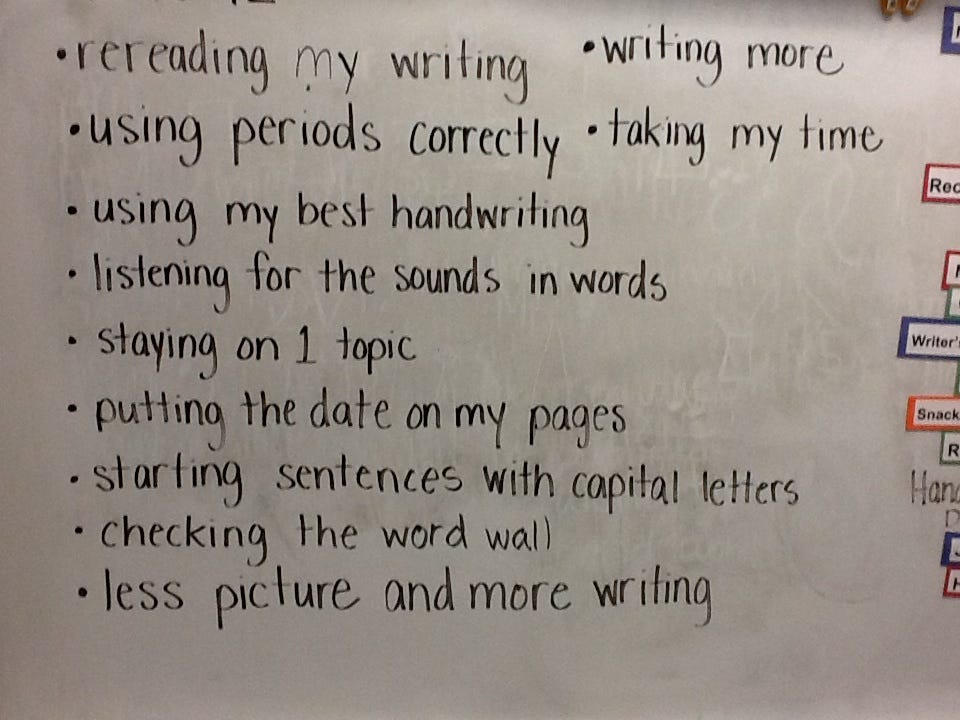 • rereading my writing • writing more
• using periods correctly • taking my time
• using my best handwriting
• listening for the sounds in words
• staying on 1 topic
• putting the date on my pages
• starting sentences with capital letters
• checking the word wall
• less picture and more writing
Writer's
Snack